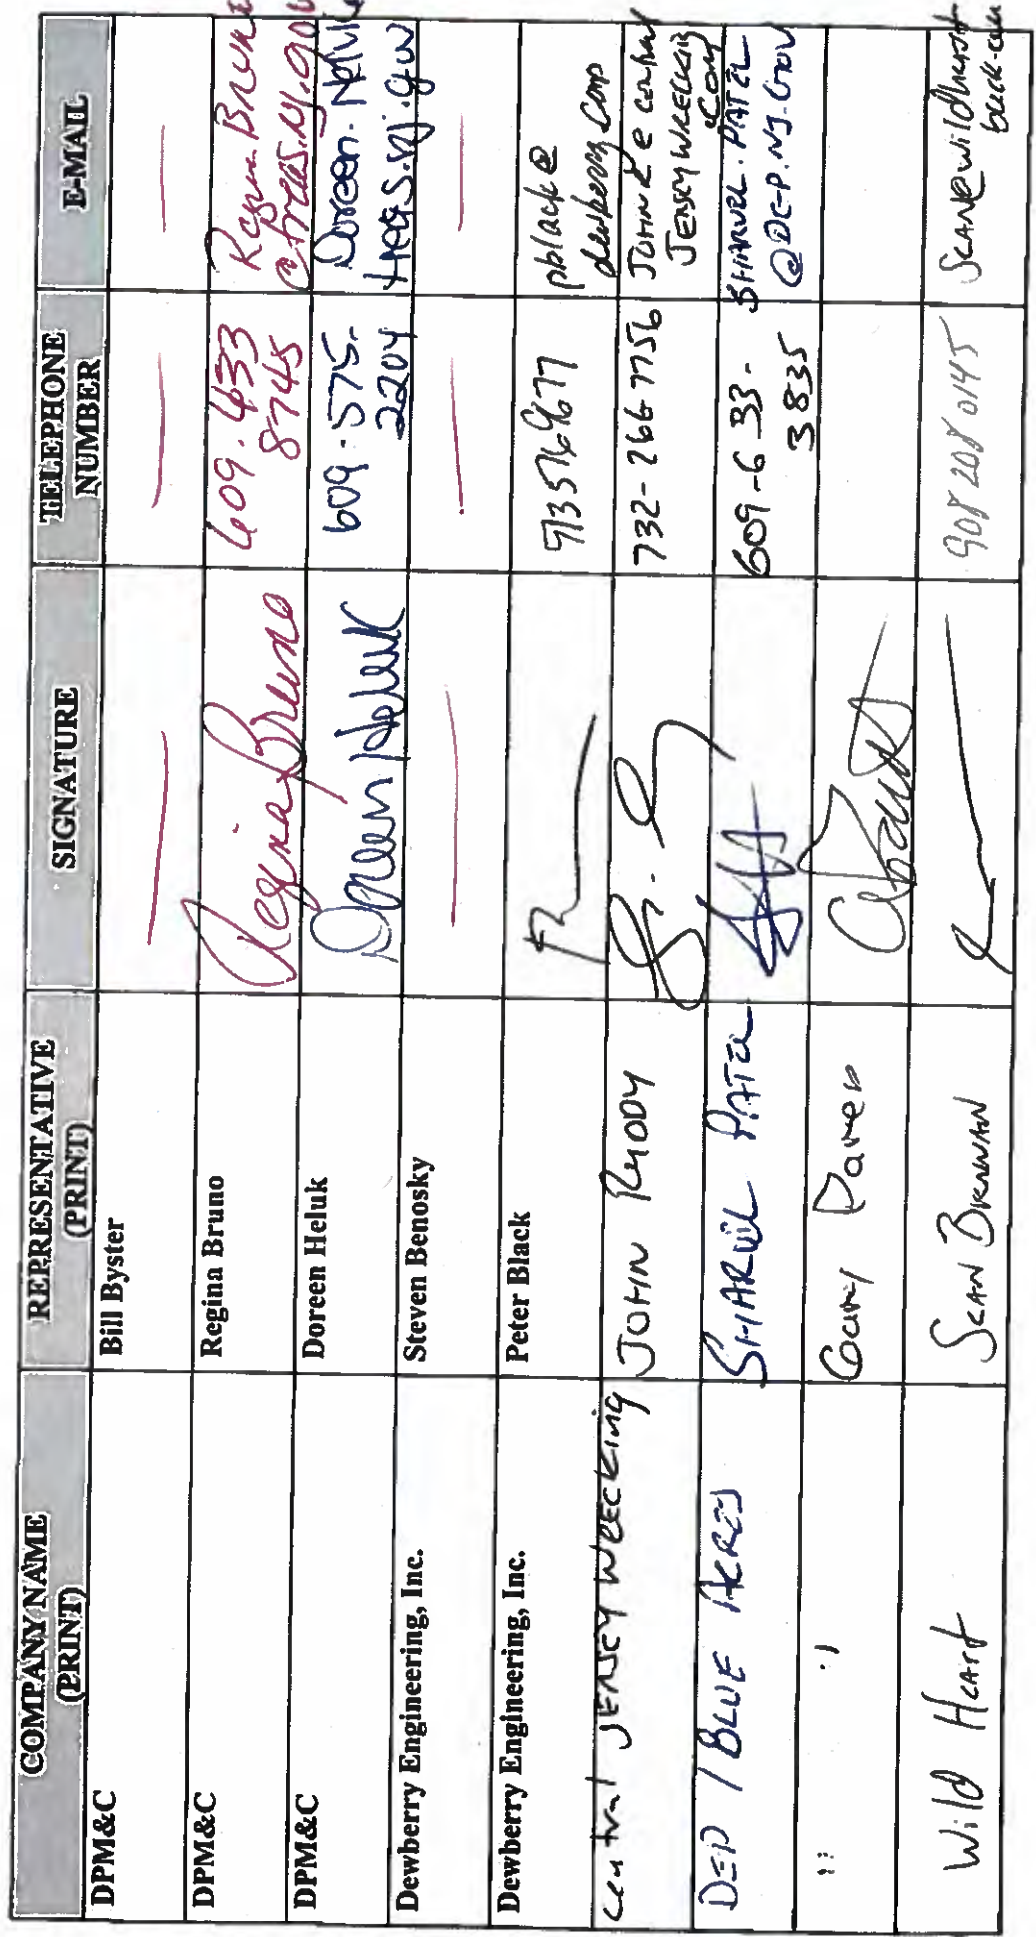 COMPANY NAME
(PRINT)
REPRESENTATIVE
(PRINT)
SIGNATURE
TELEPHONE
NUMBER
E-MAIL
DPM&C
Bill Byster
DPM&C
Regina Bruno
Regina Bruno
609.433
8745
DPM&C
Doreen Heluk
Doreen Heluk
609.575.
2204
Dewberry Engineering, Inc.
Steven Benosky
Dewberry Engineering, Inc.
Peter Black
pblack@
dewberry.com
Central JERSEY WRECKING
JOHN RHODY
732-266 7756
JOHN R e central
JERSEY WRECKING
.COM
DEP / BLUE ACRES
SHARVIL PATEL
609-633-
3835
SHARVIL.PATEL
@DEP.NJ.GOV
" "
Wild Heart
SEAN BRENNAN
908 208 0145